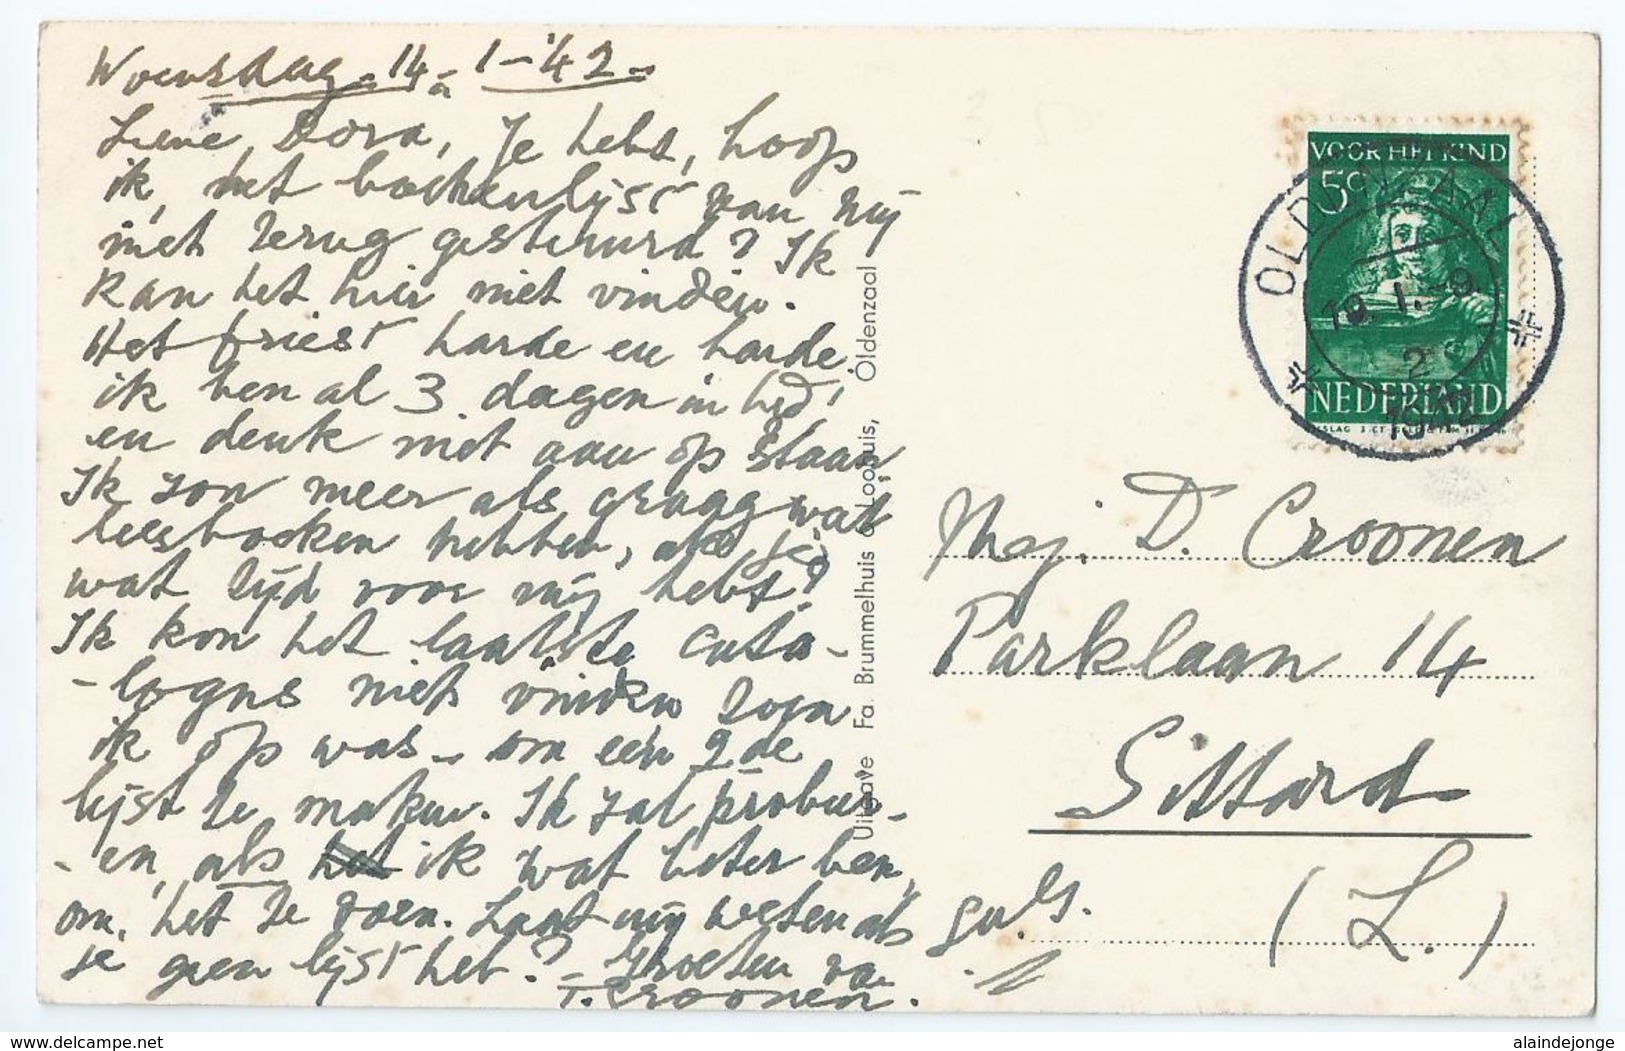 Woensdag 14-1-'42-
Lieve Dora, Je hebt, hoop
ik, het boekenlyst van my
niet terug gestuurd? Ik
kan het hier niet vinden.
Het friest harde en harde
ik ben al 3 dagen in bed!
en denk niet aan op staan
Ik zou meer als graag wat
leesboeken hebben, als je
wat tijd voor mij hebt?
Ik kon het laatste cata-
-logus niet vinden toen
ik op was - om een 2de
lijst te maken. Ik zal prober-
-en, als het ik wat beter ben,
om het te doen. Laat mij weten als
je geen lijst hebt? Groeten van
T. Croonen.
Uitgave Fa. Brummelhuis & Loohuis, Oldenzaal
VOOR HET KIND
5c
NEDERLAND
OLDENZAAL
19. 1. -9.
2
1942
Mej. D. Croonen
Parklaan 14
Sittard
(L.)
delcampe.net
alaindejonge